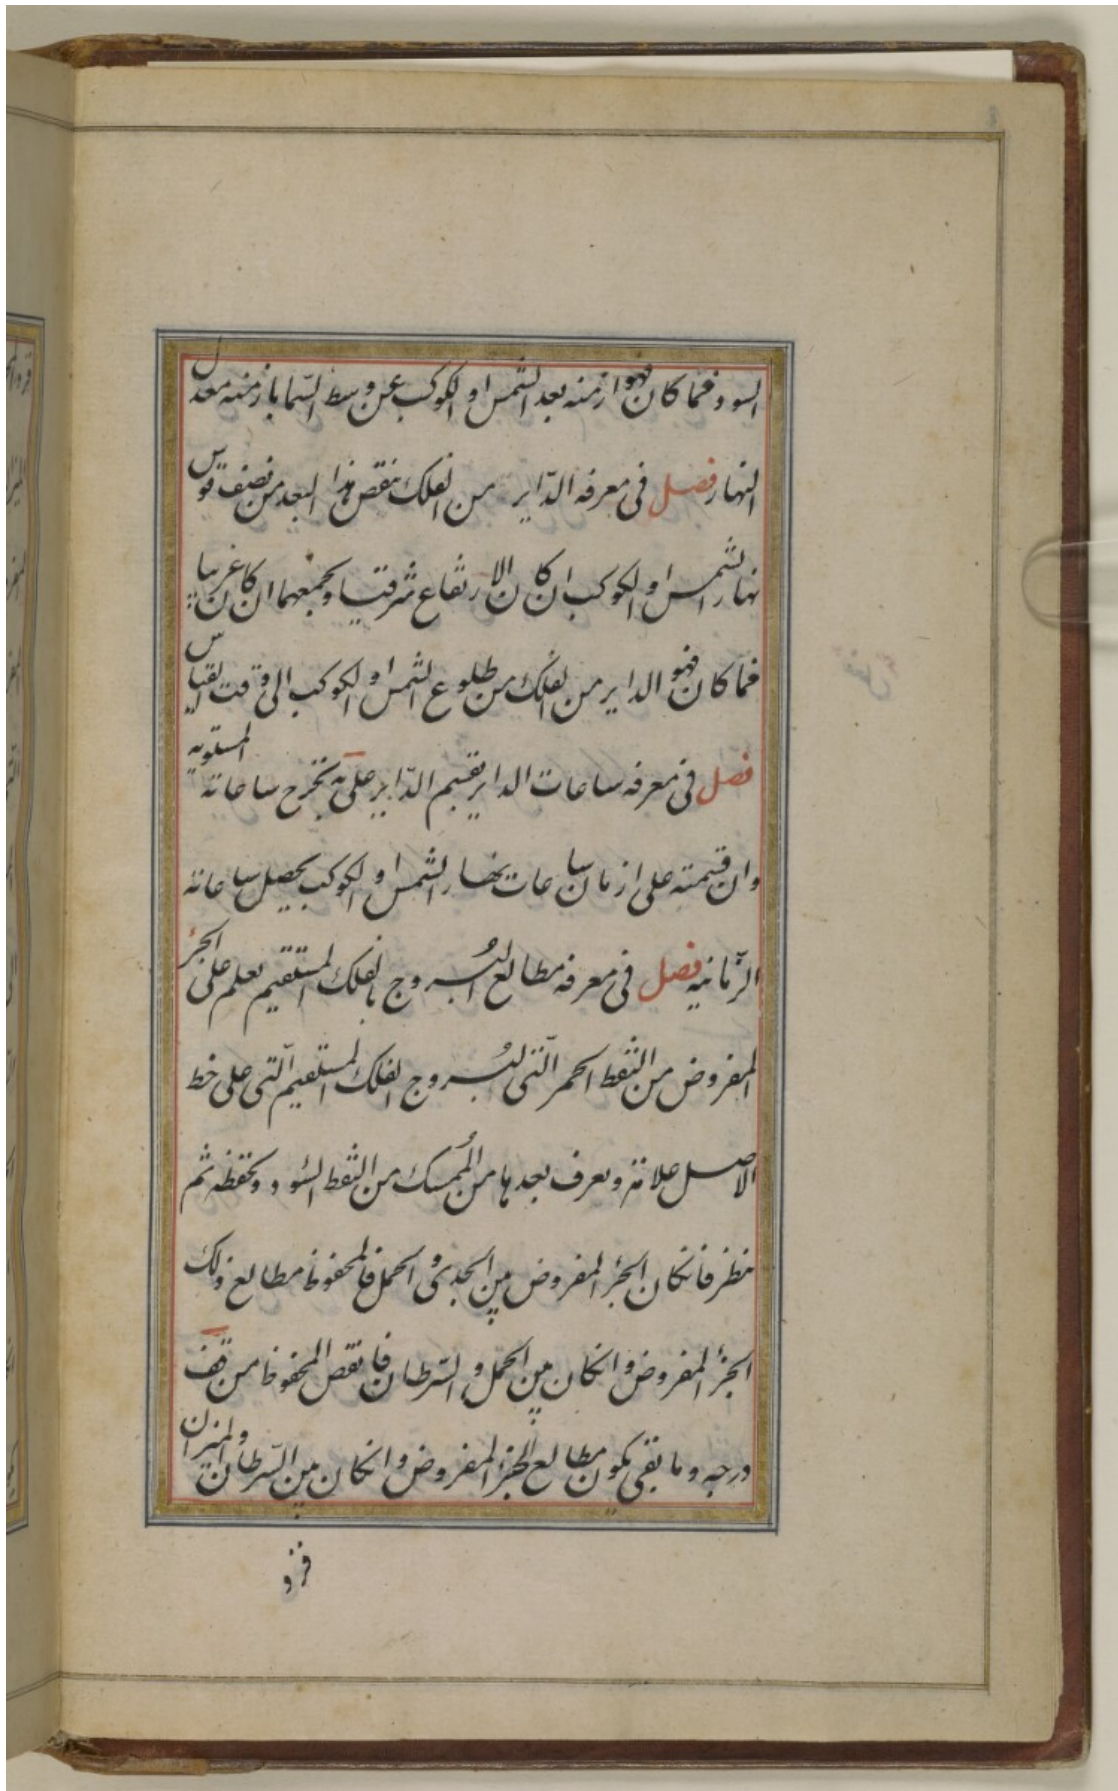 السود فما كان فهو ازمنه بعد الشمس او الكوكب عن وسط السما بازمنه معدل
النهار فصل فى معرفه الدّاير من الفلك ننقص هذا البعد من نصف قوس
نهار الشمس او الكوكب ان كان الارتفاع شرقيا ونجمعهما ان كان غربيا
فما كان فهو الداير من الفلك من طلوع الشمس او الكوكب الى وقت القياس
فصل فى معرفه ساعات الداير يقسم الدّاير على يه تخرج ساعاته المستويه
وان قسمته على ازمان ساعات نهار الشمس او الكوكب يحصل ساعاته
الزّمانيه فصل فى معرفه مطالع البُروج بالفلك المستقيم يعلم على الجزء
المفروض من النقط الحمر الّتى لبُروج الفلك المستقيم الّتى على خط
الاصل علامة ويعرف بعدها من المُمسك من النقط السّود ونحفظه ثم
ننظر فانكان الجزء المفروض بين الجدى و الحمل فالمحفوظ مطالع ذلك
الجزء المفروض وانكان بين الحمل والسّرطان فانقص المحفوظ من قف
درجه وما بقى يكون مطالع الجزء المفروض وانكان بين السّرطان والميزان
فزد